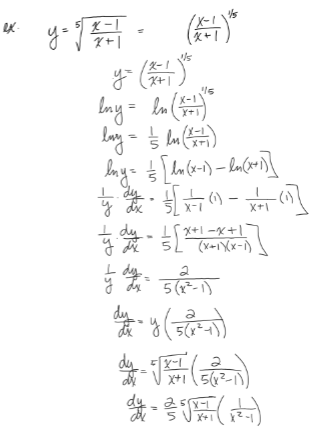 ex. y = ⁵√((x-1)/(x+1)) = ((x-1)/(x+1))^(1/5)
y = ((x-1)/(x+1))^(1/5)
ln y = ln((x-1)/(x+1))^(1/5)
ln y = 1/5 ln((x-1)/(x+1))
ln y = 1/5 [ln(x-1) - ln(x+1)]
1/y · dy/dx = 1/5 [1/(x-1) (1) - 1/(x+1) (1)]
1/y · dy/dx = 1/5 [(x+1-x+1)/((x+1)(x-1))]
1/y dy/dx = 2/(5(x²-1))
dy/dx = y (2/(5(x²-1)))
dy/dx = ⁵√((x-1)/(x+1)) (2/(5(x²-1)))
dy/dx = 2/5 ⁵√((x-1)/(x+1)) (1/(x²-1))